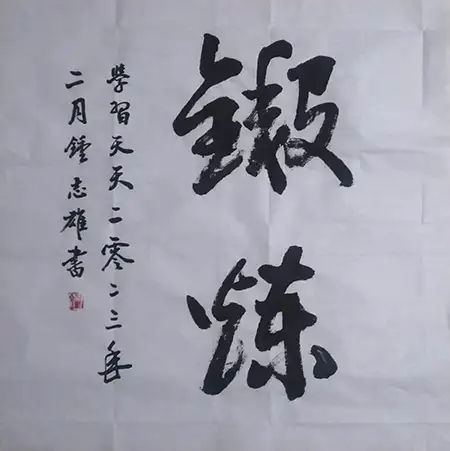 鍛炼
學習天天二零二三年
二月鍾志雄書